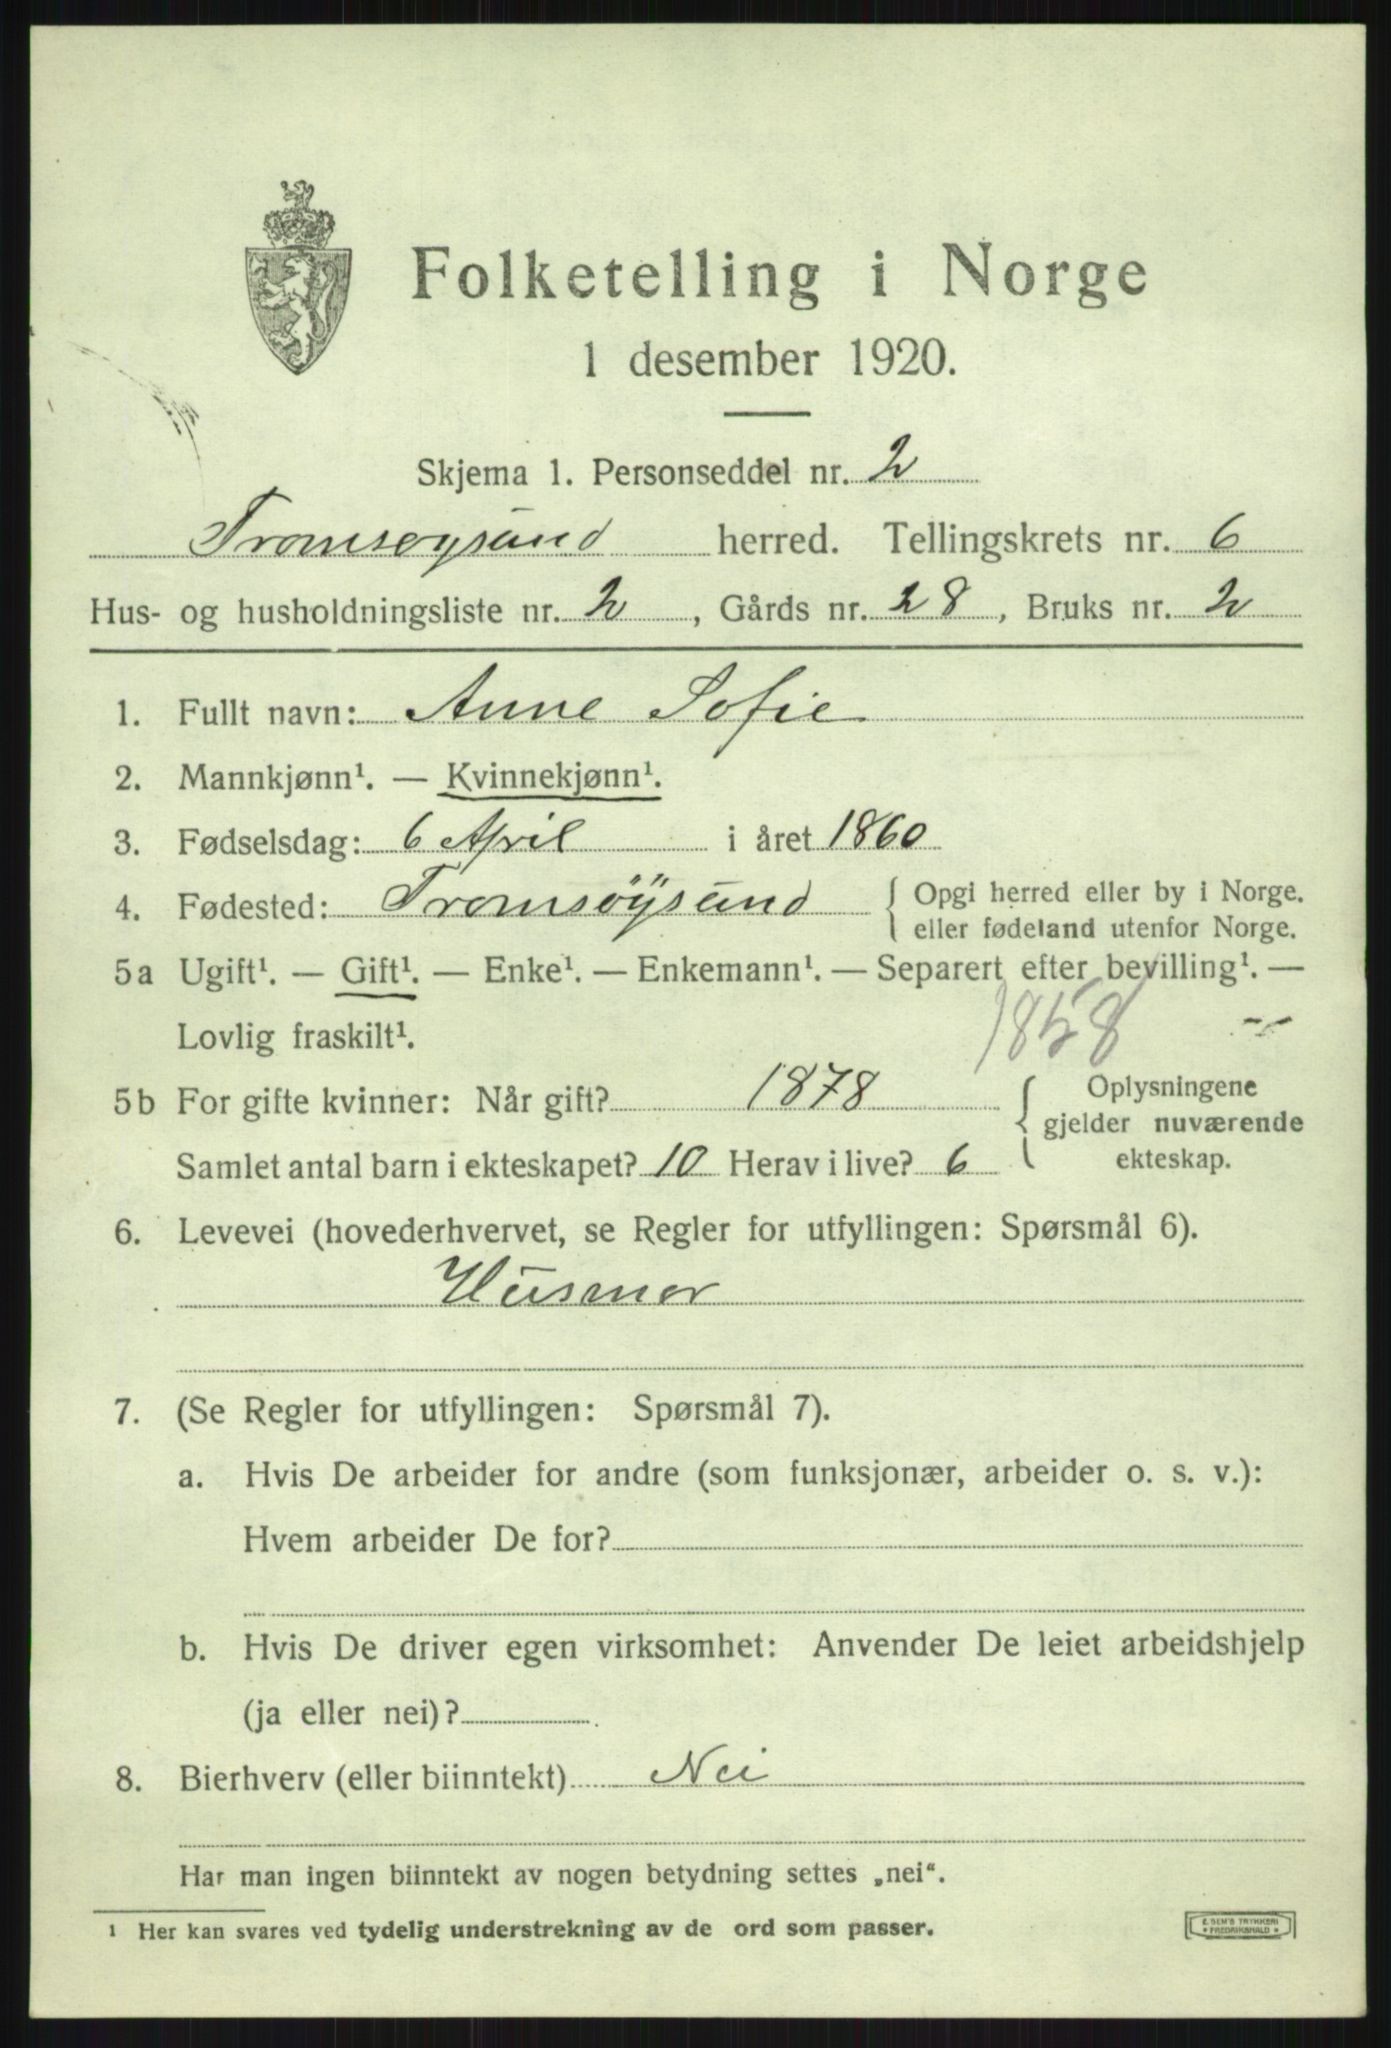 Folketelling i Norge
1 desember 1920.
Skjema 1. Personseddel nr. 2
Tromsøysund herred. Tellingskrets nr. 6
Hus- og husholdningsliste nr. 2, Gårds nr. 28, Bruks nr. 2
1. Fullt navn: Anne Sofie
2. Mannkjønn¹. — Kvinnekjønn¹.
3. Fødselsdag: 6 April i året 1860
4. Fødested: Tromsöysund { Opgi herred eller by i Norge.
eller fødeland utenfor Norge.
5a Ugift¹. — Gift¹. — Enke¹. — Enkemann¹. — Separert efter bevilling¹. —
Lovlig fraskilt¹. 1858
5b For gifte kvinner: Når gift? 1878 { Oplysningene
gjelder nuværende
Samlet antal barn i ekteskapet? 10 Herav i live? 6 ekteskap.
6. Levevei (hovederhvervet, se Regler for utfyllingen: Spørsmål 6).
Husmor
7. (Se Regler for utfyllingen: Spørsmål 7).
a. Hvis De arbeider for andre (som funksjonær, arbeider o. s. v.):
Hvem arbeider De for?
b. Hvis De driver egen virksomhet: Anvender De leiet arbeidshjelp
(ja eller nei)?
8. Bierhverv (eller biinntekt) Nei
Har man ingen biinntekt av nogen betydning settes „nei“.
¹ Her kan svares ved tydelig understrekning av de ord som passer.
E. SEM'S TRYKKERI
* FREDRIKSHALD *